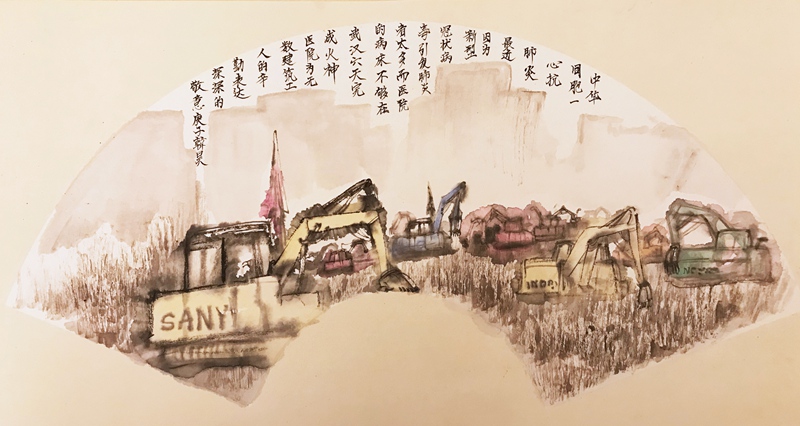 中华
同胞一
心抗
肺炎
最近
因为
新型
冠状病
毒引发肺炎
有太多而医院
的病床不够在
武汉六天完
成火神
医院为无
数建筑工
人的辛
勤表达
深深的
敬意庚子韓昊
SANY